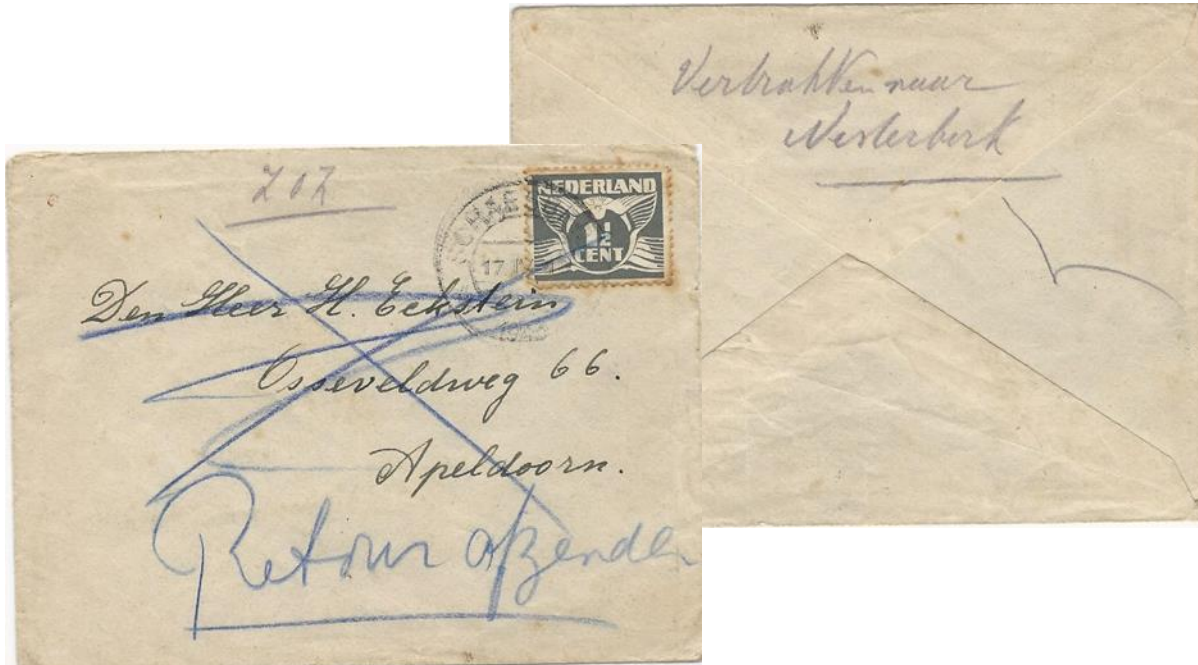 Z O Z
NEDERLAND
1½
CENT
SCHAES
17
Den Heer H. Eckstein
Osseveldweg 66.
Apeldoorn.
Retour afzender
Vertrokken naar
Westerbork